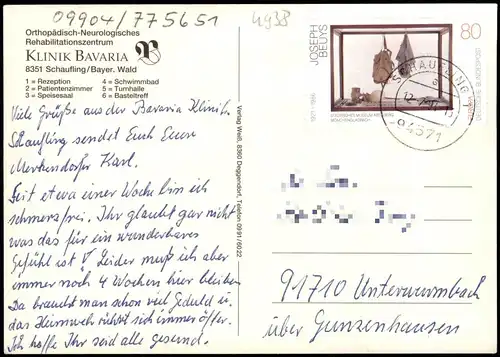 09904/775651
4938
Orthopädisch-Neurologisches
Rehabilitationszentrum
KLINIK BAVARIA
8351 Schaufling/Bayer. Wald
1 = Rezeption
4 = Schwimmbad
2 = Patientenzimmer
5 = Turnhalle
3 = Speisesaal
6 = Basteltreff
Viele Grüße aus der Bavaria Klinik
Schaufling sendet Euch Euer
Merkendorfer Karl.
Seit etwa einer Woche bin ich
schmerzfrei. Ihr glaubt gar nicht
was das für ein wunderbares
Gefühl ist! Leider muß ich aber
immer noch 4 Wochen hier bleiben
Da braucht man schon viel Geduld u.
das Heimweh rührt sich immer öfter.
Ich hoffe Ihr seid alle gesund.
Verlag Weiß, 8360 Deggendorf, Telefon 0991/6022
JOSEPH
BEUYS
1921-1986
STÄDTISCHES MUSEUM ABTEIBERG
MÖNCHENGLADBACH
80
DEUTSCHE BUNDESPOST
SCHAUFLING 1
94571
91710 Unterwurmbach
über Gunzenhausen